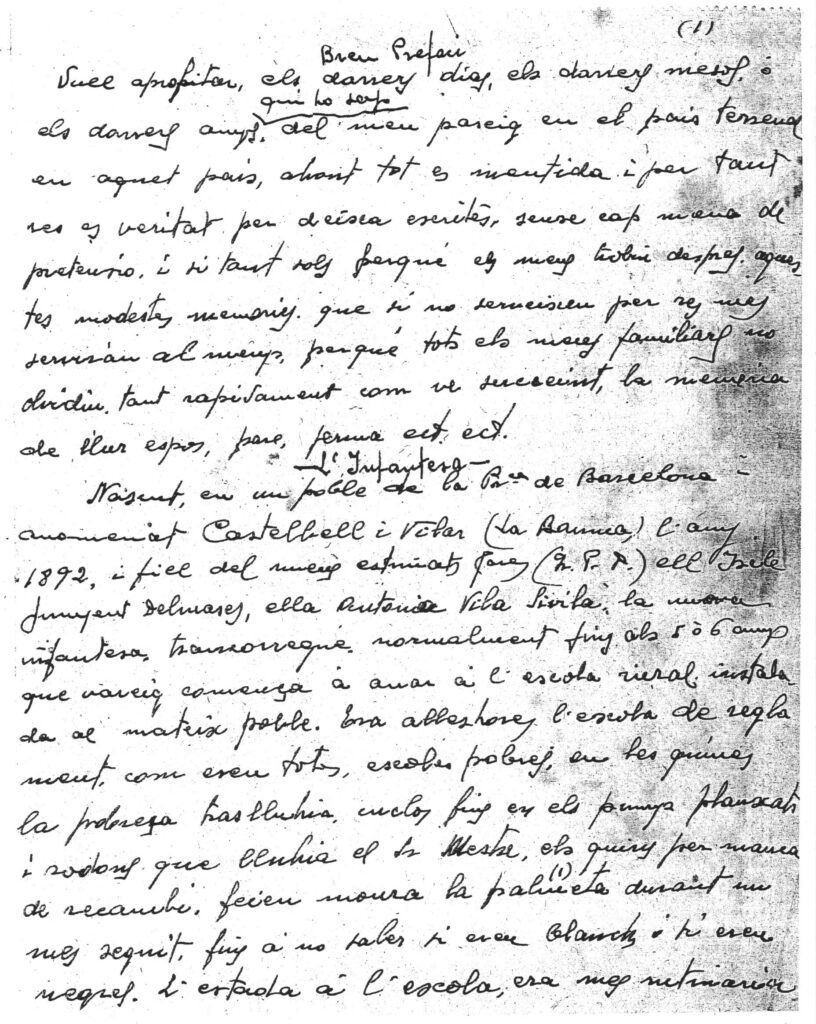 (1)
Breu Prefaci
Vull aprofitar, els darrers dias, els darrers mesos, o
qui ho sap
els darrers anys, del meu paseig en el pais terrenal
en aquet pais, ahont tot es mentida i per tant
res es veritat per deixar escrites, sense cap mena de
pretensio, i si tant sols perqué els meus trobin despres, aques
tes modestes memories que si no serveixen per res mes
serviràn al menys, perqué tots els meus familiars no
olvidin, tant rapidament com ve succeeint, la memoria
de llur espos, pare, ect. ect.
— L'Infantesa —
Nascut, en un poble de la Pr.cia de Barcelona -
anomenat Castellbell i Vilar (La Bauma) l'any
1892, i fill del meus estimats Pares (Q.P.D.) ell Isidre
Junyent Delmases, ella Antonia Vila Sivila, la meva
infantesa, transcorregué, normalment fins als 5 ò 6 anys
que vareig comença à anar à l'escola rural instala
da al mateix poble. Era alleshores l'escola de regla
ment, com eren totes, escoles pobres, en les quines
la pobresa traslluhia, inclos fins en els punys planxats
i rodons que lluhia el Sr Mestre, els quins per manca
de recambi, feien moura la palmeta (1) durant un
mes seguit, fins à no saber si eren blanchs o si eren
negres. L'estada à l'escola, era mes rutinaria